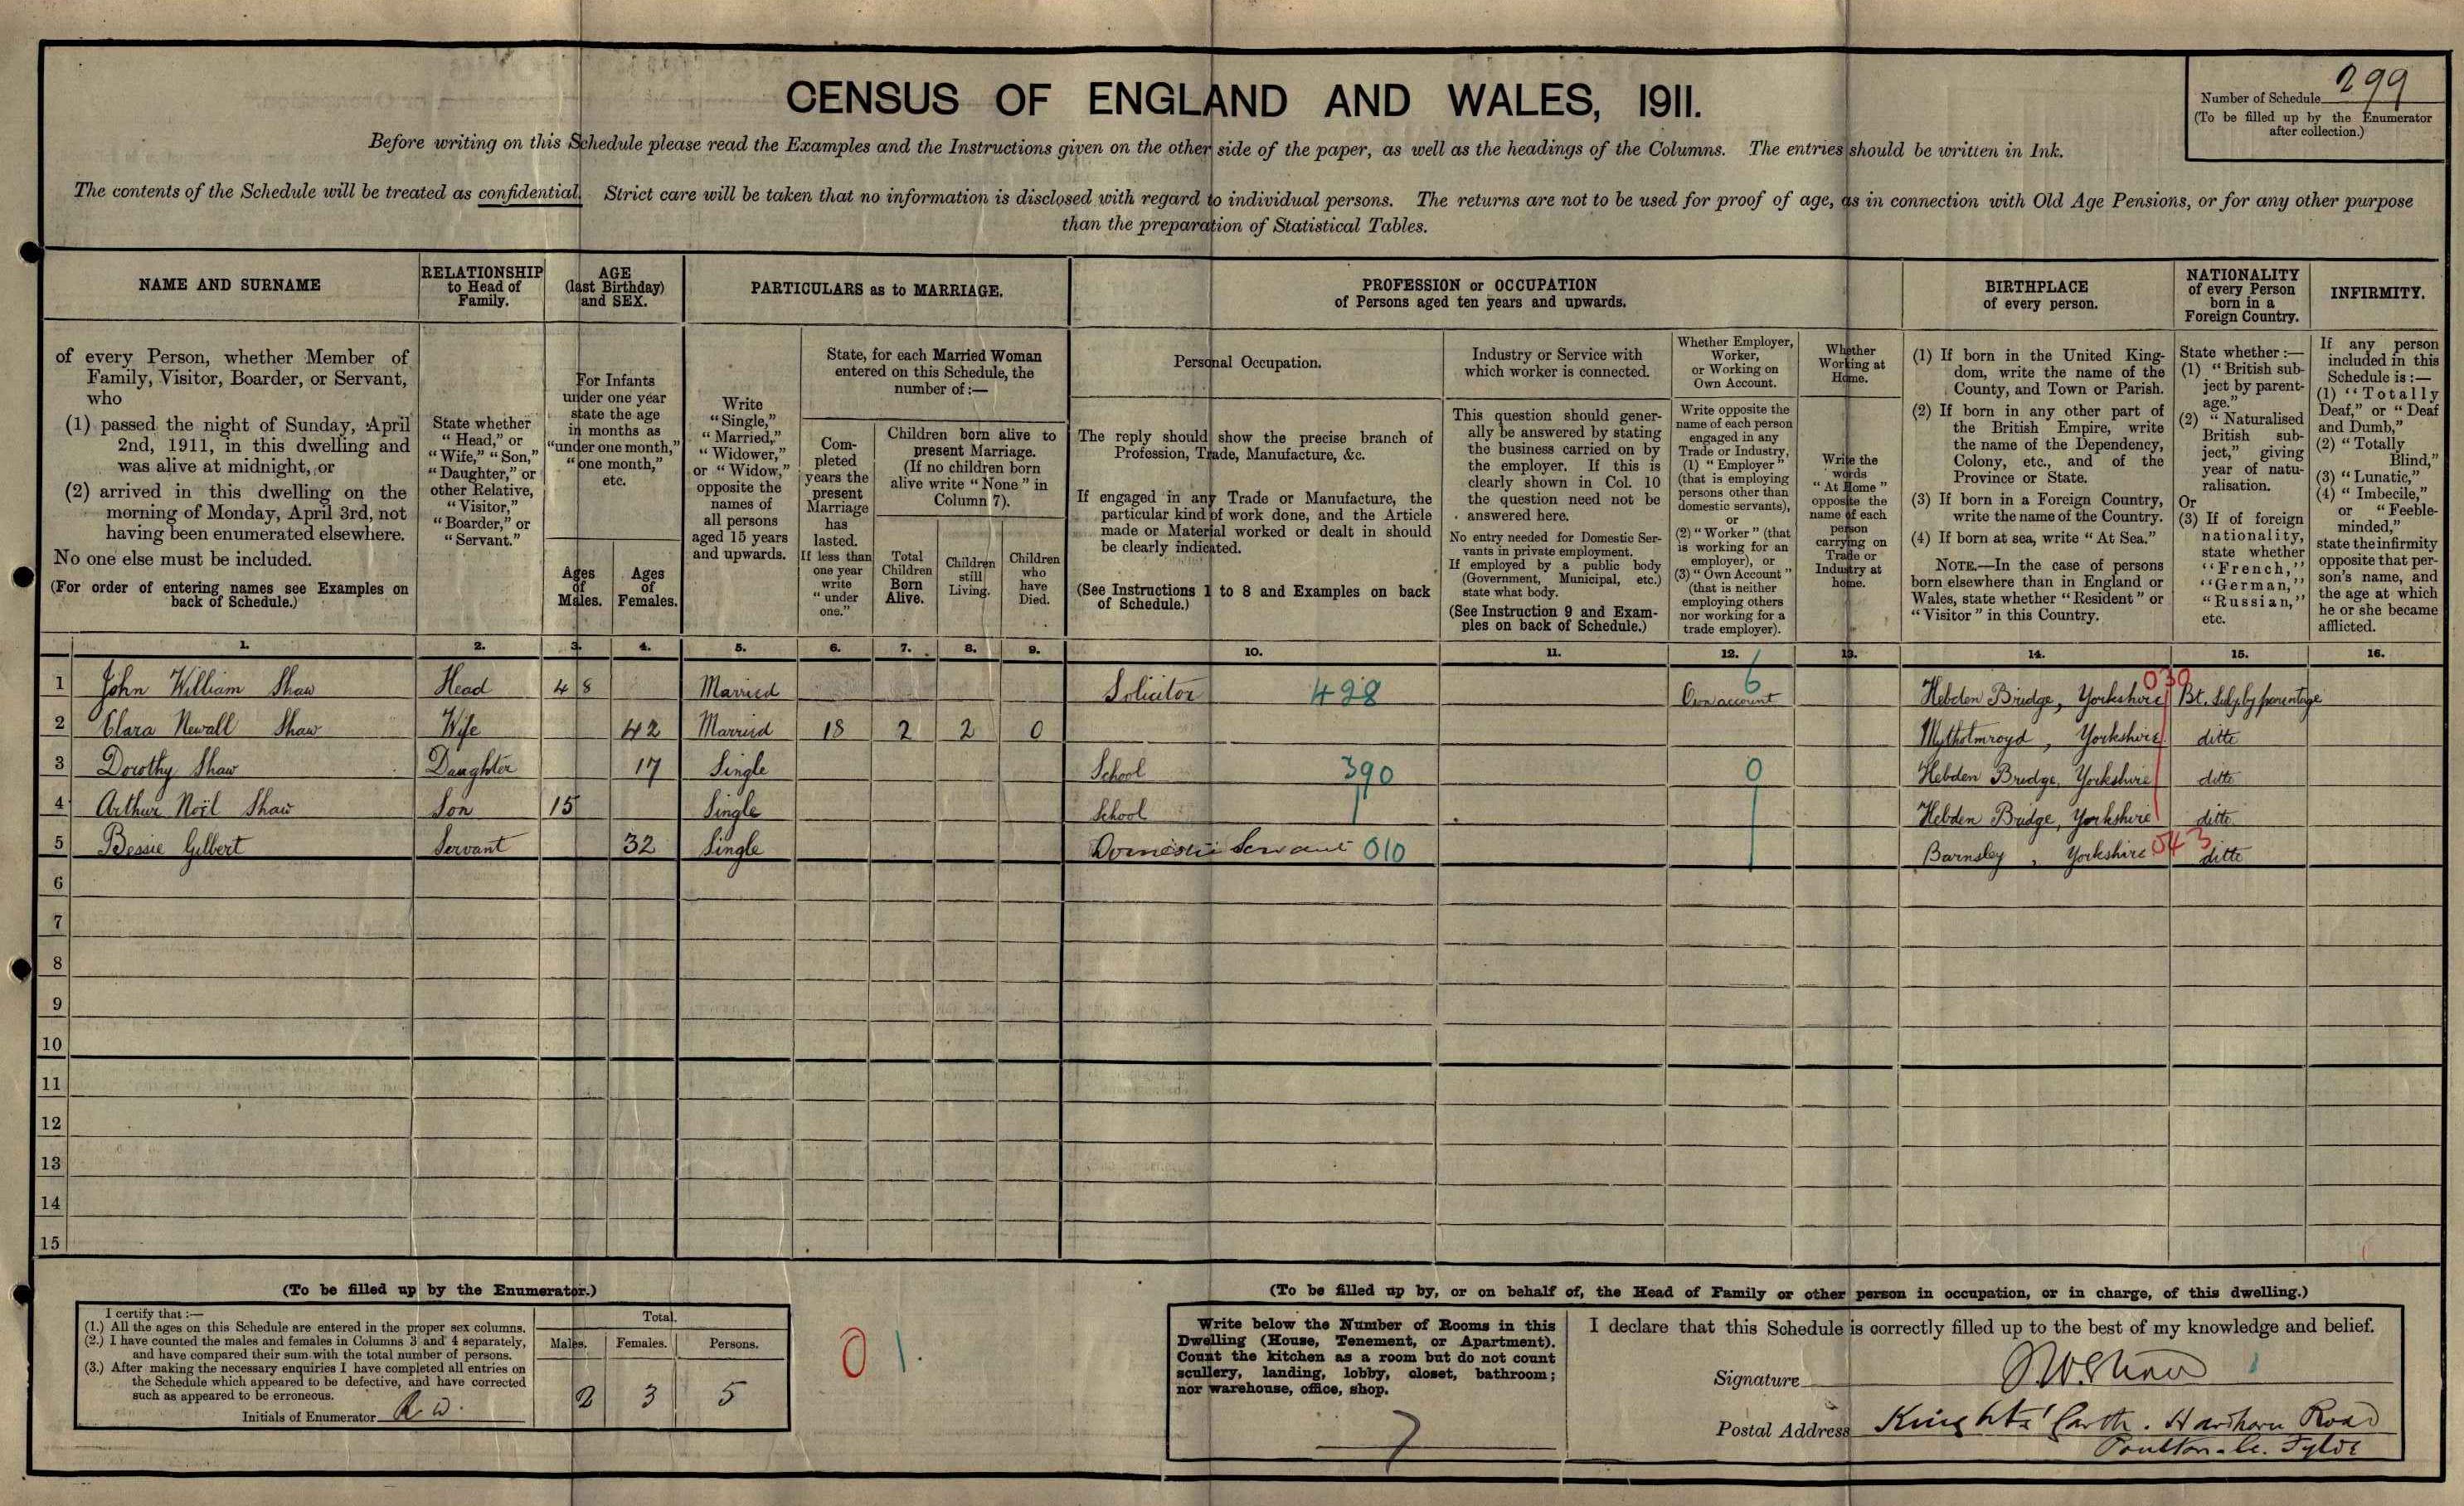 CENSUS OF ENGLAND AND WALES, 1911.
Number of Schedule 299
(To be filled up by the Enumerator
after collection.)
Before writing on this Schedule please read the Examples and the Instructions given on the other side of the paper, as well as the headings of the Columns. The entries should be written in Ink.
The contents of the Schedule will be treated as confidential. Strict care will be taken that no information is disclosed with regard to individual persons. The returns are not to be used for proof of age, as in connection with Old Age Pensions, or for any other purpose
than the preparation of Statistical Tables.
NAME AND SURNAME
of every Person, whether Member of
Family, Visitor, Boarder, or Servant,
who
(1) passed the night of Sunday, April
2nd, 1911, in this dwelling and
was alive at midnight, or
(2) arrived in this dwelling on the
morning of Monday, April 3rd, not
having been enumerated elsewhere.
No one else must be included.
(For order of entering names see Examples on
back of Schedule.)
RELATIONSHIP
to Head of
Family.
State whether
"Head," or
"Wife," "Son,"
"Daughter," or
other Relative,
"Visitor,"
"Boarder," or
"Servant."
AGE
(last Birthday)
and SEX.
For Infants
under one year
state the age
in months as
"under one month,"
"one month,"
etc.
Ages
of
Males.
Ages
of
Females.
PARTICULARS as to MARRIAGE.
Write
"Single,"
"Married,"
"Widower,"
or "Widow,"
opposite the
names of
all persons
aged 15 years
and upwards.
State, for each Married Woman
entered on this Schedule, the
number of:—
Com-
pleted
years the
present
Marriage
has
lasted.
If less than
one year
write
"under
one."
Children born alive to
present Marriage.
(If no children born
alive write "None" in
Column 7).
Total
Children
Born
Alive.
Children
still
Living.
Children
who
have
Died.
PROFESSION or OCCUPATION
of Persons aged ten years and upwards.
Personal Occupation.
The reply should show the precise branch of
Profession, Trade, Manufacture, &c.
If engaged in any Trade or Manufacture, the
particular kind of work done, and the Article
made or Material worked or dealt in should
be clearly indicated.
(See Instructions 1 to 8 and Examples on back
of Schedule.)
Industry or Service with
which worker is connected.
This question should gener-
ally be answered by stating
the business carried on by
the employer. If this is
clearly shown in Col. 10
the question need not be
answered here.
No entry needed for Domestic Ser-
vants in private employment.
If employed by a public body
(Government, Municipal, etc.)
state what body.
(See Instruction 9 and Exam-
ples on back of Schedule.)
Whether Employer,
Worker,
or Working on
Own Account.
Write opposite the
name of each person
engaged in any
Trade or Industry,
(1) "Employer"
(that is employing
persons other than
domestic servants),
or
(2) "Worker" (that
is working for an
employer), or
(3) "Own Account"
(that is neither
employing others
nor working for a
trade employer).
Whether
Working at
Home.
Write the
words
"At Home"
opposite the
name of each
person
carrying on
Trade or
Industry at
home.
BIRTHPLACE
of every person.
(1) If born in the United King-
dom, write the name of the
County, and Town or Parish.
(2) If born in any other part of
the British Empire, write
the name of the Dependency,
Colony, etc., and of the
Province or State.
(3) If born in a Foreign Country,
write the name of the Country.
(4) If born at sea, write "At Sea."
NOTE.—In the case of persons
born elsewhere than in England or
Wales, state whether "Resident" or
"Visitor" in this Country.
NATIONALITY
of every Person
born in a
Foreign Country.
State whether:—
(1) "British sub-
ject by parent-
age."
(2) "Naturalised
British sub-
ject," giving
year of natu-
ralisation.
Or
(3) If of foreign
nationality,
state whether
"French,"
"German,"
"Russian,"
etc.
INFIRMITY.
If any person
included in this
Schedule is:—
(1) "Totally
Deaf," or "Deaf
and Dumb,"
(2) "Totally
Blind,"
(3) "Lunatic,"
(4) "Imbecile,"
or "Feeble-
minded,"
state the infirmity
opposite that per-
son's name, and
the age at which
he or she became
afflicted.
1. 2. 3. 4. 5. 6. 7. 8. 9. 10. 11. 12. 13. 14. 15. 16.
1 John William Shaw Head 48 Married Solicitor 428 Own account 6 Hebden Bridge, Yorkshire 039 Bt. Subj. by parentage
2 Clara Newall Shaw Wife 42 Married 18 2 2 0 Mytholmroyd, Yorkshire ditto
3 Dorothy Shaw Daughter 17 Single School 390 0 Hebden Bridge, Yorkshire ditto
4 Arthur Noël Shaw Son 15 Single School Hebden Bridge, Yorkshire ditto
5 Bessie Gilbert Servant 32 Single Domestic Servant 010 Barnsley, Yorkshire 043 ditto
6
7
8
9
10
11
12
13
14
15
(To be filled up by the Enumerator.)
I certify that:—
(1.) All the ages on this Schedule are entered in the proper sex columns.
(2.) I have counted the males and females in Columns 3 and 4 separately,
and have compared their sum with the total number of persons.
(3.) After making the necessary enquiries I have completed all entries on
the Schedule which appeared to be defective, and have corrected
such as appeared to be erroneous.
Initials of Enumerator R W.
Total.
Males. Females. Persons.
2 3 5
0 1
(To be filled up by, or on behalf of, the Head of Family or other person in occupation, or in charge, of this dwelling.)
Write below the Number of Rooms in this
Dwelling (House, Tenement, or Apartment).
Count the kitchen as a room but do not count
scullery, landing, lobby, closet, bathroom;
nor warehouse, office, shop.
7
I declare that this Schedule is correctly filled up to the best of my knowledge and belief.
Signature J.W. Shaw
Postal Address Knights' Garth. Hardhorn Road
Poulton-le-Fylde